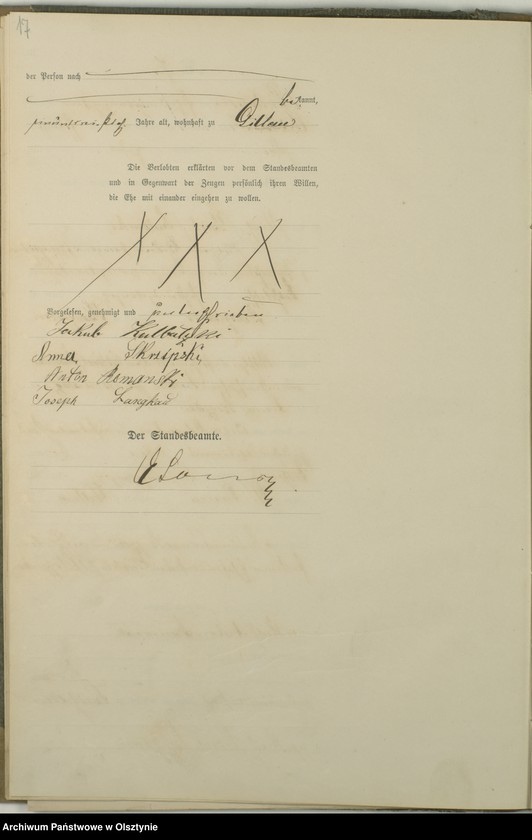 17
der Person nach
bekannt,
Jahre alt, wohnhaft zu Dittau
Die Verlobten erklärten vor dem Standesbeamten
und in Gegenwart der Zeugen persönlich ihren Willen,
die Ehe mit einander eingehen zu wollen.
Vorgelesen, genehmigt und unterschrieben
Jakub
Anna Skrzipski,
Anton Romanski
Joseph Langkau
Der Standesbeamte.
Archiwum Państwowe w Olsztynie